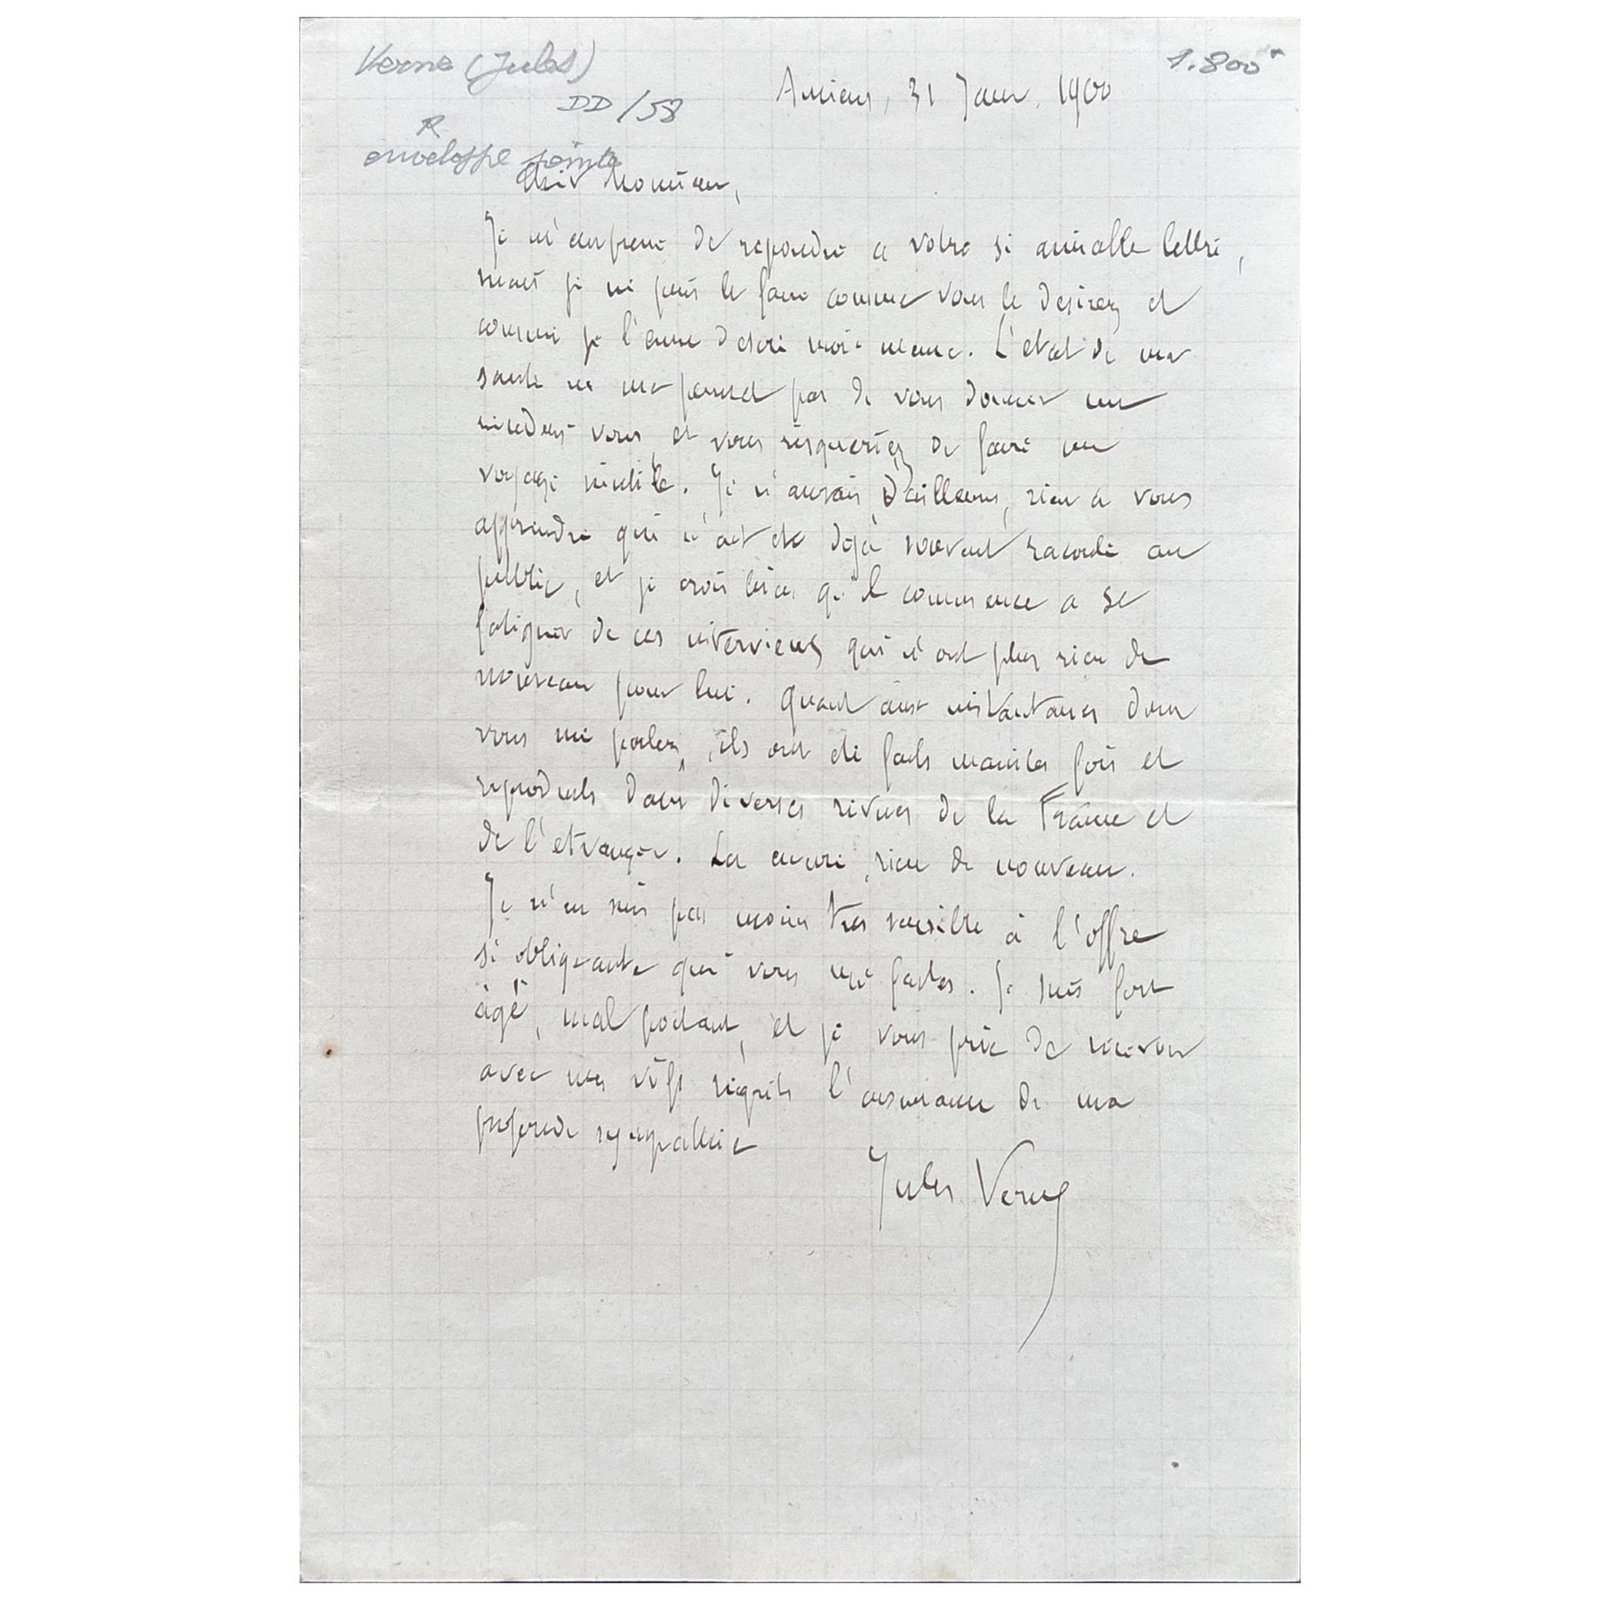 Verne (Jules)
1.800
DD/58
R
enveloppe jointe
Amiens, 31 Janv. 1900
Cher Monsieur,
Je m'empresse de repondre a votre si aimable lettre,
mais je ne puis le faire comme vous le desirez et
comme je l'eusse desiré moi-meme. L'etat de ma
santé ne me permet pas de vous donner un
rendez-vous, et vous risqueriez de faire un
voyage inutile. Je n'aurais, d'ailleurs, rien a vous
apprendre qui n'ait eté déjà souvent raconté au
public, et je crois bien qu'il commence a se
fatiguer de ces interviews qui n'ont plus rien de
nouveau pour lui. Quant aux instantanés dont
vous me parlez, ils ont été faits maintes fois et
reproduits dans diverses revues de la France et
de l'etranger. La encore, rien de nouveau.
Je n'en suis pas moins tres sensible à l'offre
si obligeante que vous me faites. Je suis fort
âgé, mal portant, et je vous prie de recevoir
avec mes vifs regrets l'assurance de ma
profonde sympathie
Jules Verne